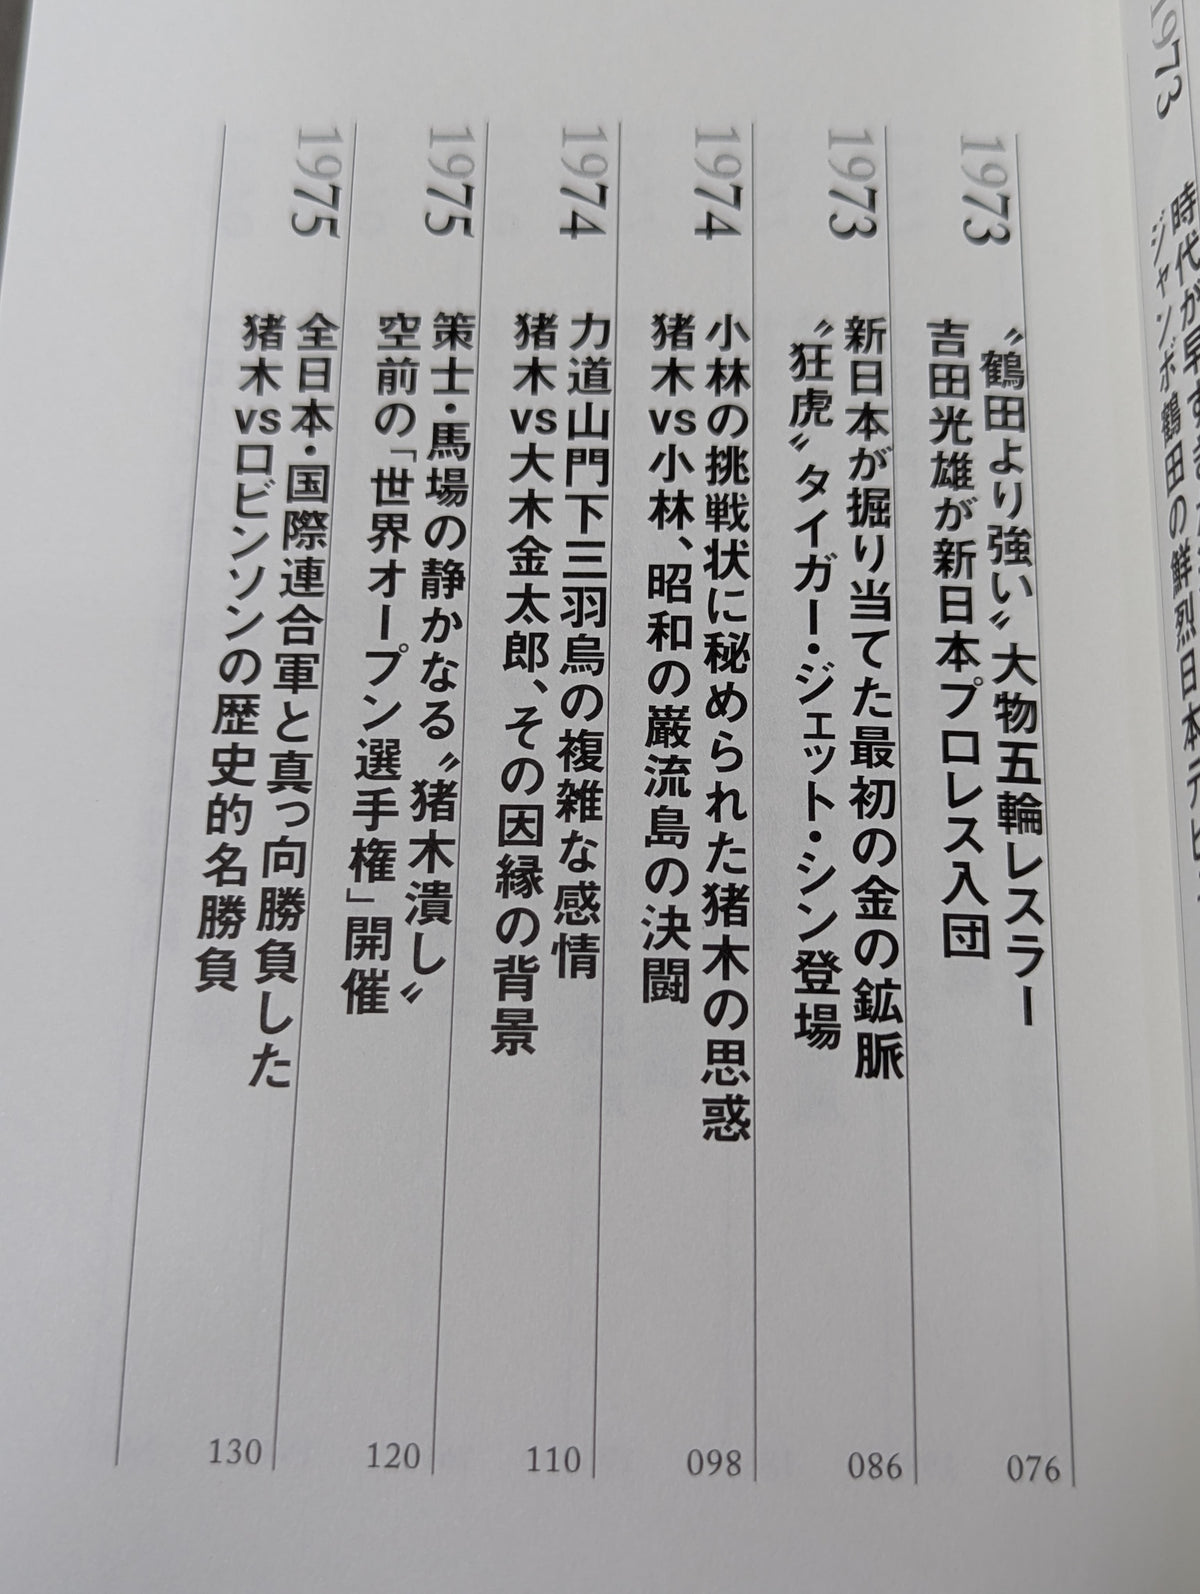 1973
時代が早す
ジャンボ鶴田の鮮烈日本デビ
1973
〝鶴田より強い〟大物五輪レスラー
吉田光雄が新日本プロレス入団
076
1973
新日本が掘り当てた最初の金の鉱脈
〝狂虎〟タイガー・ジェット・シン登場
086
1974
小林の挑戦状に秘められた猪木の思惑
猪木vs小林、昭和の巌流島の決闘
098
1974
力道山門下三羽烏の複雑な感情
猪木vs大木金太郎、その因縁の背景
110
1975
策士・馬場の静かなる〝猪木潰し〟
空前の「世界オープン選手権」開催
120
1975
全日本・国際連合軍と真っ向勝負した
猪木vsロビンソンの歴史的名勝負
130